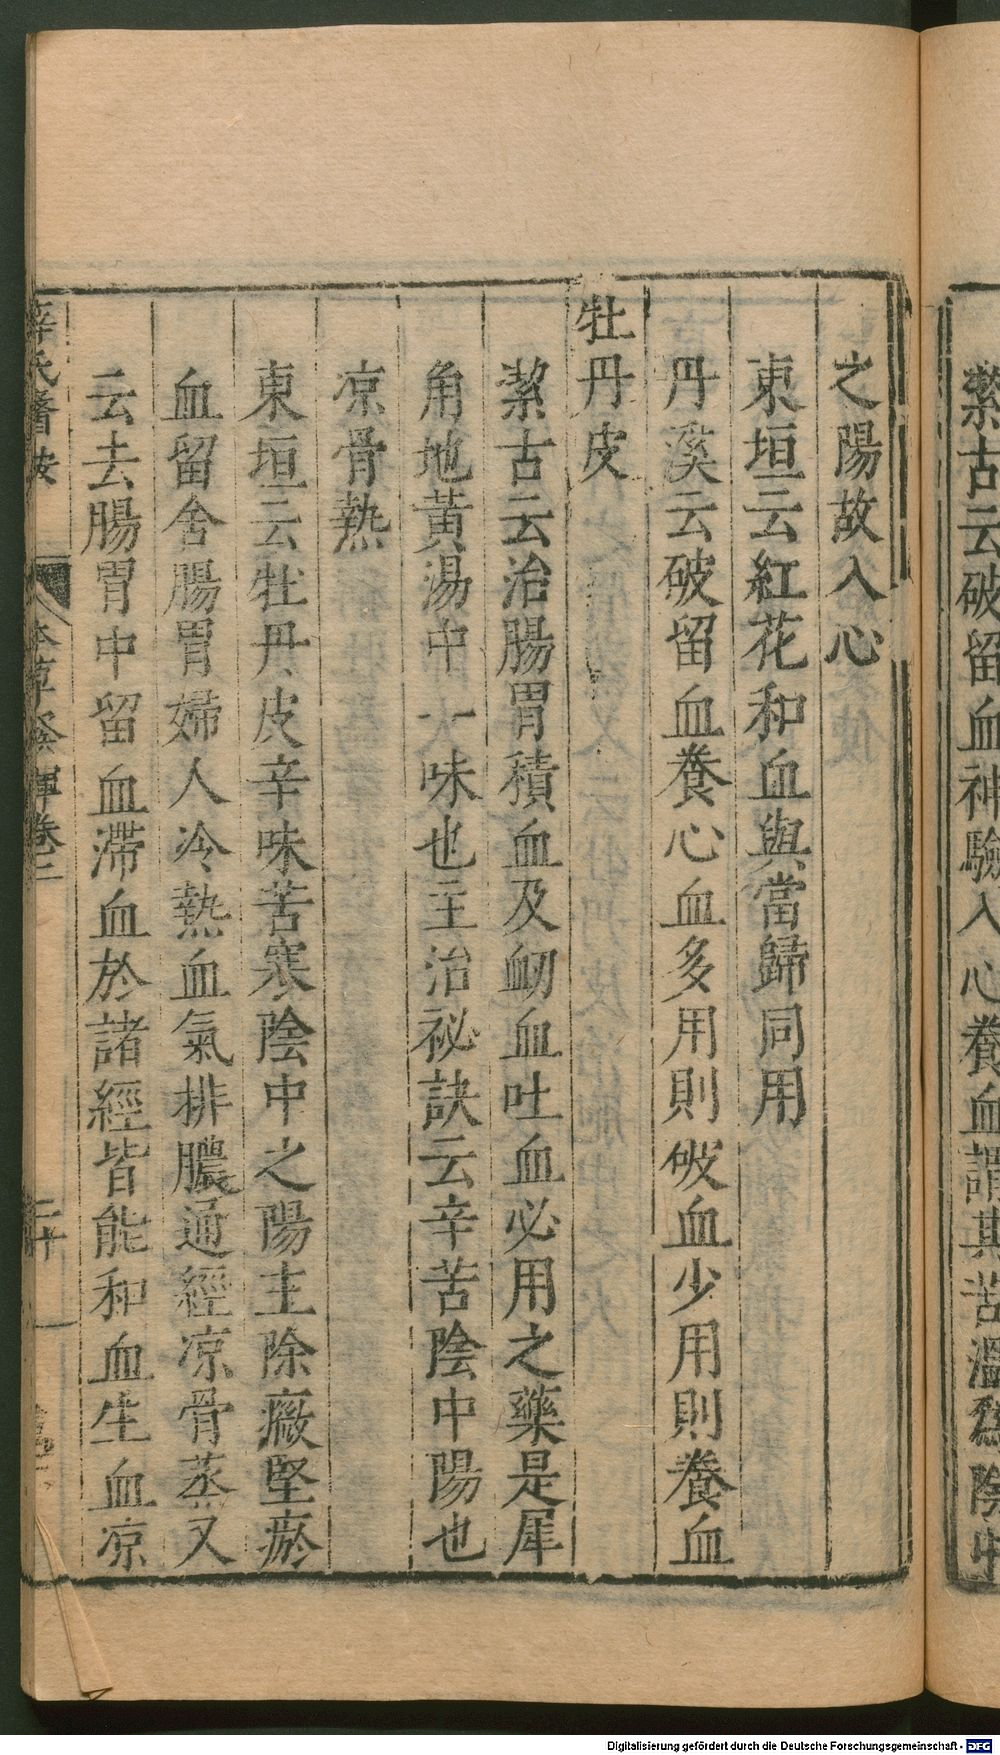 絜古云破留血神驗入心養血謂其苦溫爲陰中
之陽故入心
東垣云紅花和血與當歸同用
丹溪云破留血養心血多用則破血少用則養血
牡丹皮
絜古云治腸胃積血及衂血吐血必用之藥是犀
角地黃湯中一味也主治祕訣云辛苦陰中陽也
凉骨熱
東垣云牡丹皮辛味苦寒陰中之陽主除癥堅瘀
血留舍腸胃婦人冷熱血氣排膿通經凉骨蒸又
云去腸胃中留血滯血於諸經皆能和血生血凉
薛氏醫按
本草發揮卷三
二十
Digitalisierung gefördert durch die Deutsche Forschungsgemeinschaft - DFG